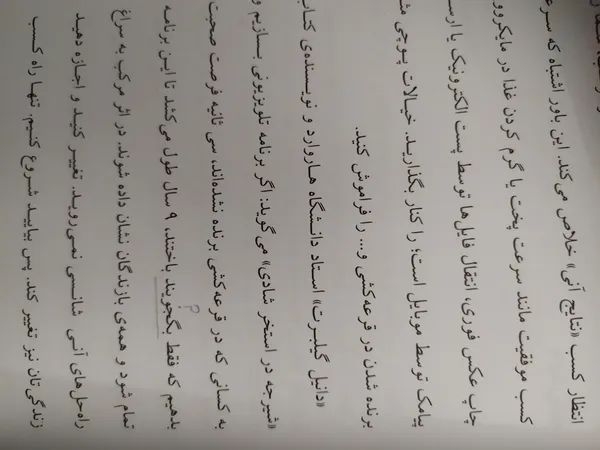 انتظار کسب «نتایج آنی» خلاص می‌کند. این باور اشتباه که
کسب موفقیت مانند سرعت پخت یا گرم کردن غذا در مایکروو
چاپ عکس فوری، انتقال فایل‌ها توسط پست الکترونیک یا ارسـ
پیامک توسط موبایل است؛ را کنار بگذارید. خیالات پوچی
برنده شدن در قرعه‌کشی و... را فراموش کنید.
«دانیل گیلبرت» استاد دانشگاه هاروارد و نویسنده‌ی
«شیرجه در استخر شادی» می‌گوید: اگر برنامه تلویزیونی بسازیم و
به کسانی که در قرعه‌کشی برنده نشده‌اند، سی ثانیه فرصت صحبت
?
بدهیم که فقط بگجویند باختند، ۹ سال طول می‌کشد تا این برنامه
تمام شود و همه‌ی بازندگان نشان داده شوند. در اثر مرکب به سراغ
راه‌حل‌های آنی شانسی نمی‌روید. تغییر کنید و اجازه دهید
زندگی‌تان نیز تغییر کند. پس بیایید شروع کنیم. تنها راه کسب